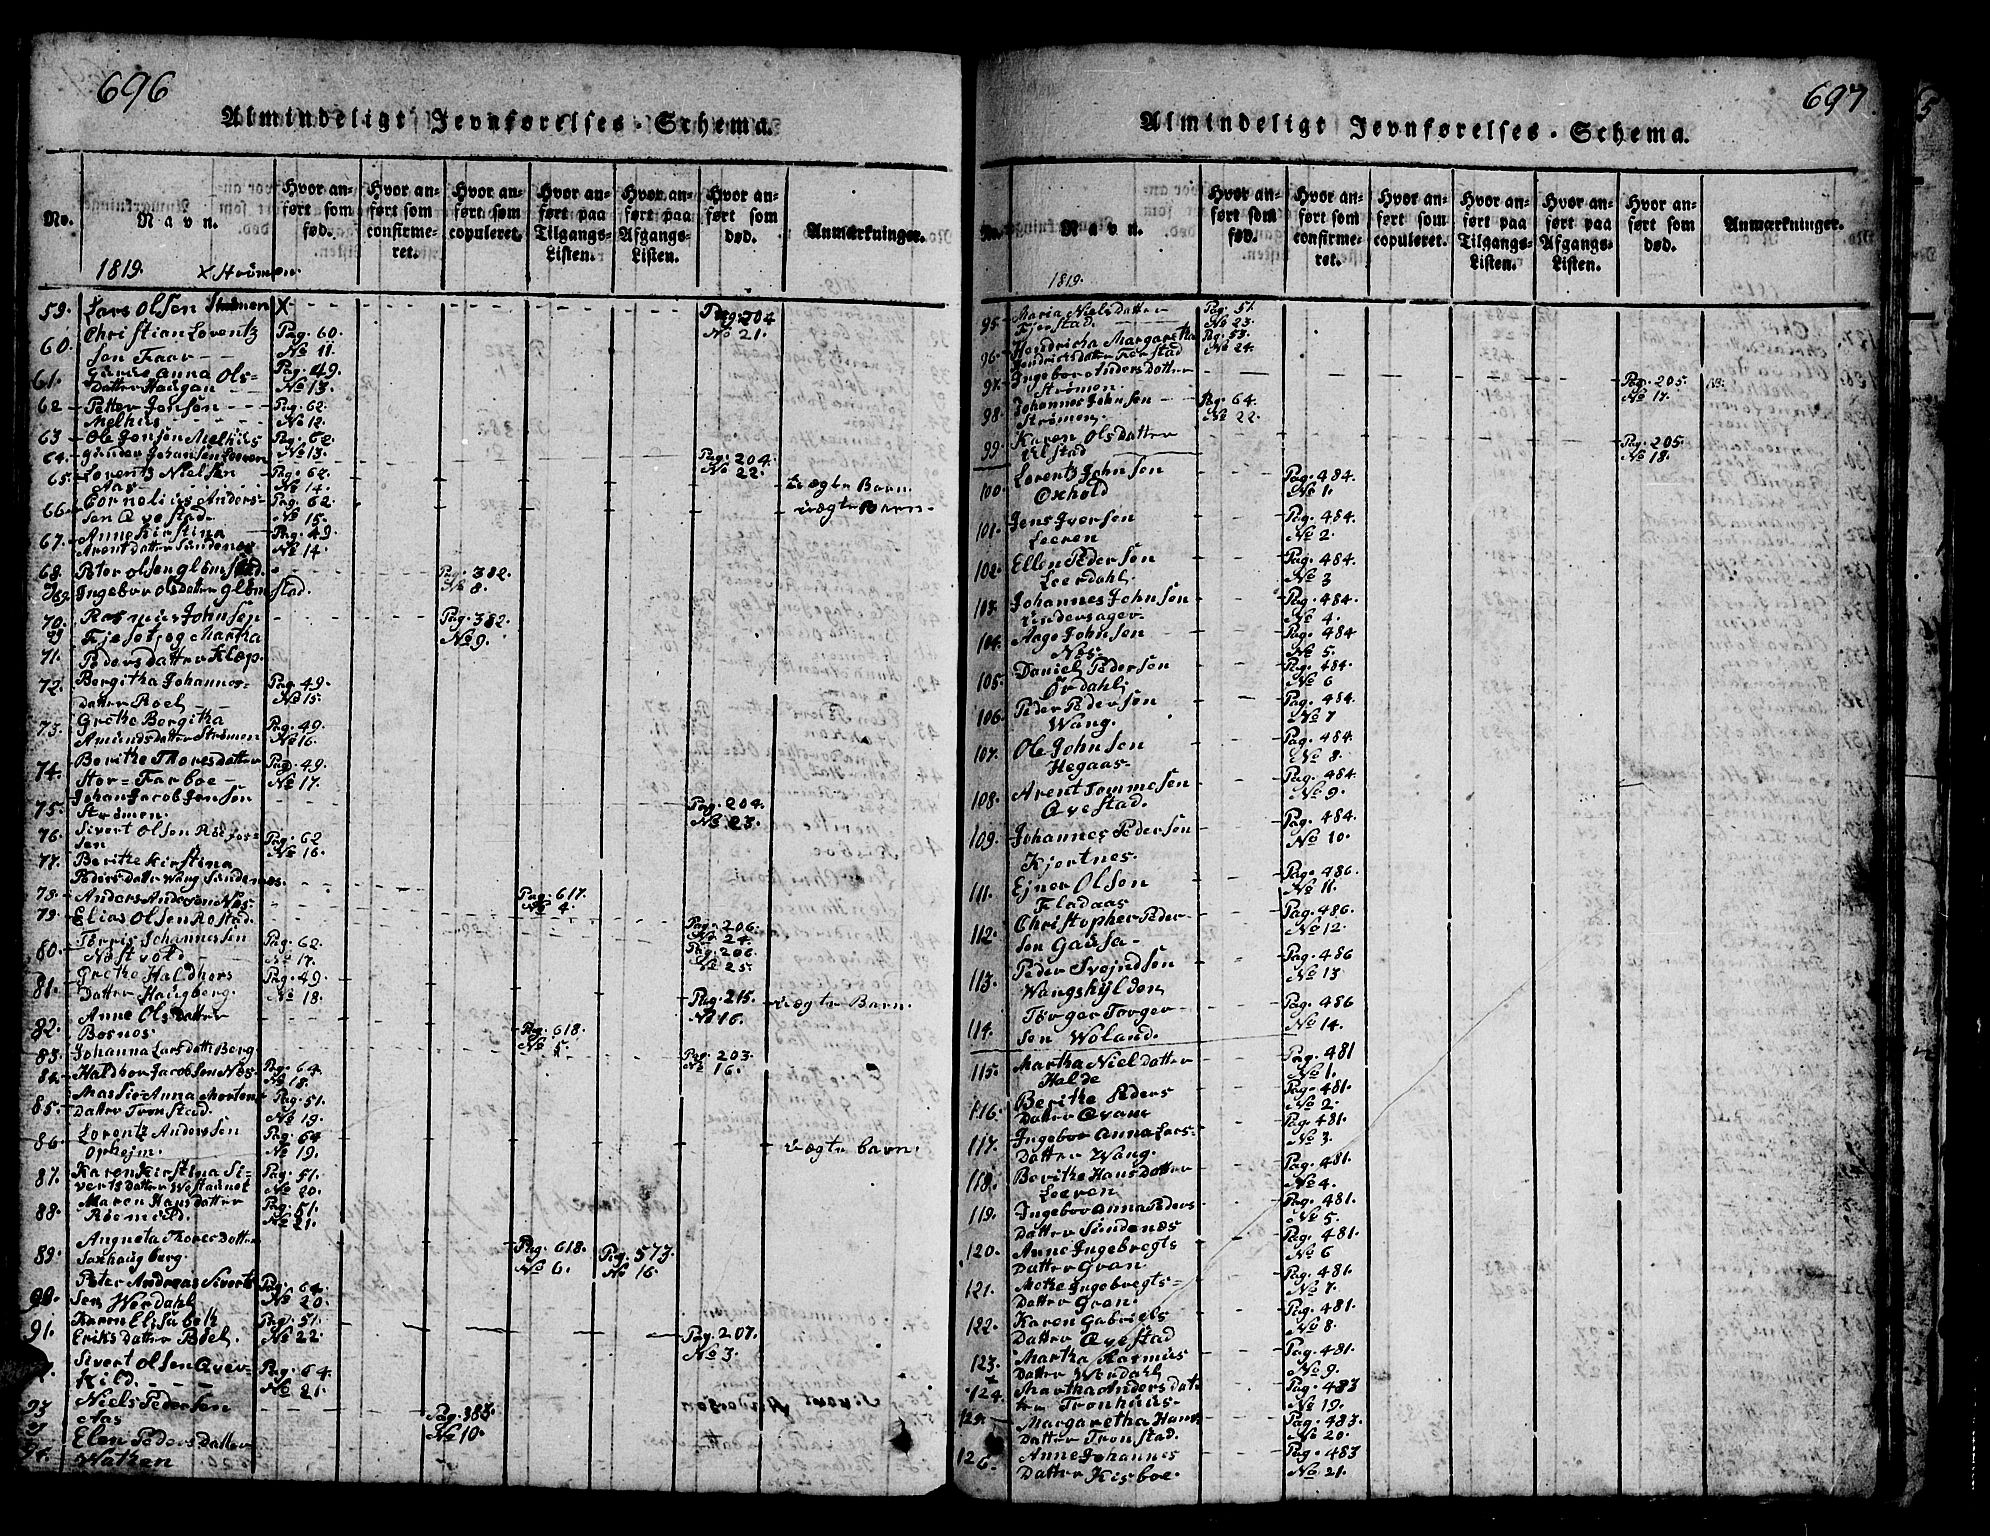 696
Almindeligt Jevnførelses-Schema.
No.
Navn.
Hvor anført som fød.
Hvor anført som confirmeret.
Hvor anført som copuleret.
Hvor anført paa Tilgangs-Listen.
Hvor anført paa Afgangs-Listen.
Hvor anført som død.
Anmærkninger.
1819. X Strömen.
59. Lars Olsen X Pag. 204
No 21.
60. Christian Lorentz Pag. 60.
Sen Faar No 11.
61. Anna Ols= Pag. 49.
Datter Haugan No 13.
62 Petter Jonsen Pag. 62.
Melhus No 12.
63 Ole Jonsen Melhus Pag. 62.
No 13.
64. Johansen Leeren Pag. 204.
No 22.
65. Lorentz Nielsen Pag. 62.
Aas No 14. uægte Barn
66 Cornelius Anders- Pag. 62.
sen Qvestad No 15. uægte Barn
67. Anne Kirstina Pag. 49
Arentdatter Sundenes No 14.
68. Peter Olsen Glömstad. Pag. 382.
69. Ingebor Olsdatter Glömstad. No 8.
70. Rasmus Johnsen Pag. 382.
og Martha No 9.
71. Pedersdatter Klæp.
72. Bergitha Johannes- Pag. 49.
datter Roel No 15.
73. Grethe Bergitha Pag. 49.
Amundsdatter Strömen No 16.
74. Berithe Thoresdatter Pag. 49.
Stor=Farboe No 17.
75. Johan Jacob Jensen Pag. 204.
Strömen. No 23.
76. Sivert Olsen Pag. 62
sen No 16.
77. Berithe Kirstina
Pedersdatter Wang Sundenes.
78. Anders Andersen Næs Pag. 617.
No 4.
79. Elias Olsen Rostad. Pag. 206.
No 24.
80. Törris Johannessen Pag. 62. Pag. 206.
Næstvold No 17. No 25.
81. Grethe Haldhors Pag. 49.
Datter Haugberg. No 18. Pag. 215. uægte Barn.
82. Anne Olsdatter No 16.
Bosnes Pag. 618.
83. Johanna Larsdatt. Berg No 5. Pag. 203.
84. Haldbor Jacobsen Næs Pag. 64. No 16.
No 18.
85. Massie Anna Morten Pag. 51.
Datter Tronstad. No 19.
86. Lorentz Andersen Pag. 64
Opheim. No 19. uægte barn.
87. Karen Kirstina Si- Pag. 51.
vertsdatter No 20.
88. Maren Hansdatter Pag. 51.
Roemild. No 21.
89. Angneta Thoresdatter Pag. 618. Pag. 573.
Saxhaug berg. No 6. No 16.
90. Peter Andreas Siverts Pag. 64.
Sen Werdahl No 20.
91. Karen Elisabeth Pag. 51.
Eriksdatter Röel. No 22. Pag. 207.
No 3.
Sivert Olsen Qver- Pag. 64.
kild. No 21.
93 Niels Pedersen Pag. 383.
Aas No 10.
og Elen Pedersdatter
94. Watten
697
Almindeligt Jevnførelses-Schema.
No.
Navn.
Hvor anført som fød.
Hvor anført som confirmeret.
Hvor anført som copuleret.
Hvor anført paa Tilgangs-Listen.
Hvor anført paa Afgangs-Listen.
Hvor anført som død.
Anmærkninger.
1819.
95. Maria Nielsdatter Pag. 51.
Fjerstad. No 23.
96. Hendricha Margaretha Pag. 53.
Hendrichsdatter Fierstad No 24.
97. Ingebor Andersdatter Pag. 205. NB:
Strömen. No 17.
98. Johannes Johnsen Pag. 64.
Strömen. No 22.
99. Karen Olsdatter Pag. 205.
Ulstad No 18.
100. Lorentz Johnsen Pag. 484.
Oxhold No 1.
101. Jens Iversen Pag. 484.
Leeren No 2.
102. Ellen Pedersen Pag. 484.
Leerdahl. No 3
103. Johannes Johnsen Pag. 484.
Undersager No 4.
104. Aage Johnsen Pag. 484
Næs. No 5.
105. Daniel Pedersen Pag. 484.
Ördahl. No 6
106. Peder Pedersen Pag. 484.
Wang. No 7
107. Ole Johnsen Pag. 484.
Hegaas. No 8.
108. Arent Tommesen Pag. 484.
Qvestad. No 9.
109. Johannes Pedersen Pag. 484.
Kjertnes. No 10.
111. Ejner Olsen Pag. 486.
Fladaas No 11.
112. Christopher Peder- Pag. 486.
sen Gausa No 12.
113. Peder Svejndsen Pag. 486
Wangshylden No 13
114. Törger Torger- Pag. 486
sen Woland. No 14.
115. Martha Nielsdatter Pag. 481
Halde No 1.
116. Berithe Peders Pag. 481.
Datter Qvam No 2.
117. Ingebor Anna Lars- Pag. 481.
Datter Wang. No 3.
118. Berithe Hansdatter Pag. 481.
Leeren No 4.
119. Ingebor Anna Peders Pag. 481.
Datter Sundenæs No 5.
120. Anne Ingebregts Pag. 481.
Datter Gran. No 6
121. Mette Ingebregts= Pag. 481.
Datter Gran. No 7.
122. Karen Gabriels Pag. 481.
Datter Qvestad No 8.
123. Martha Rasmus Pag. 481.
Datter Werdahl No 9.
124. Martha Anders dat Pag. 483
ter Tronhuus No 19.
125. Margaretha Hans Pag. 483.
Datter Tronstad. No 20.
126. Anne Johannes Pag. 483
Datter Kisboe. No 21.